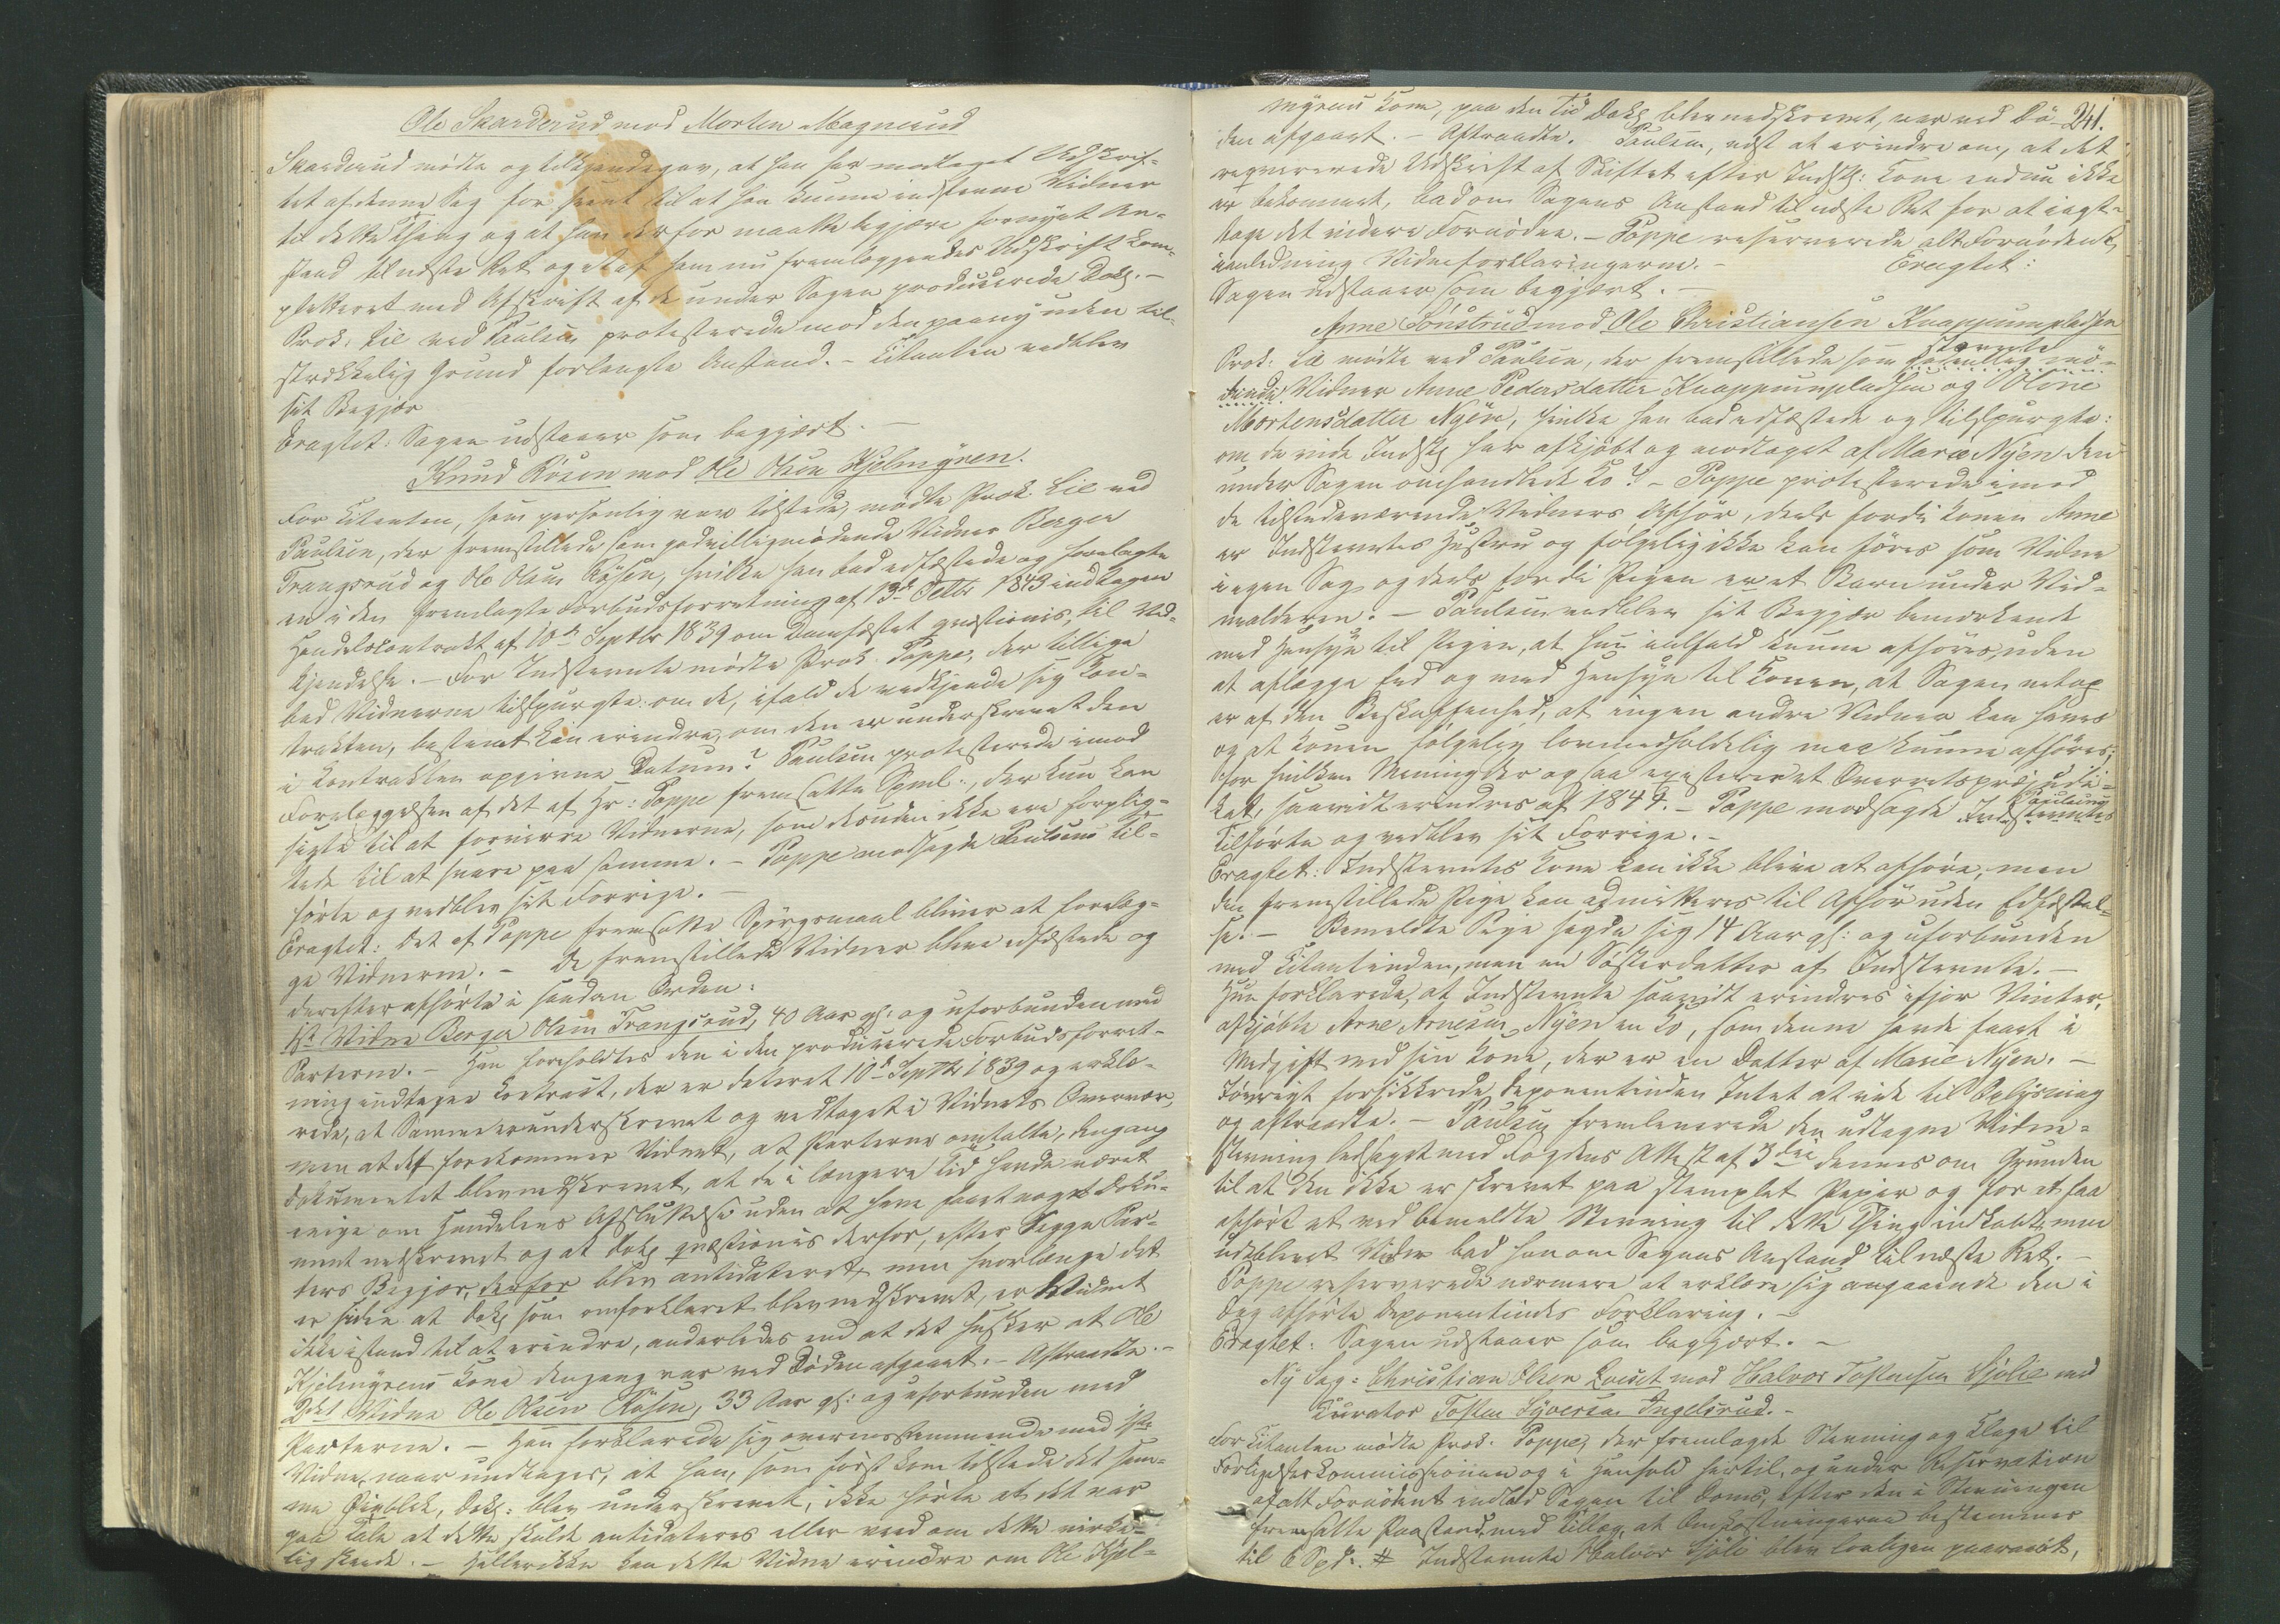 Ole Skarderud mod Morten Magnerud
Skarderud mødte og tilkjendegav, at han har modtaget Udskrif-
tet af denne Sag for seent til at han kunne indstevne Vidner
til dette Thing og at han derfor maatte begjære fornyet An-
stand til næste Ret og at af ham nu fremlæggendes Udskrift kom-
pletteret med Afskrift af de under Sagen producerede Dok. –
Prok. Lie ved Paulsen protesterede mod den paany uden til-
strækkelig Grund forlangte Anstand. – Citanten vedblev
sit Begjær
Eragtet: Sagen udstaaer som begjært. –
Knud Røsen mod Ole Olsen Kjelmyren.
For Citanten, som personlig var tilstede, mødte Prok. Lie ved
Paulsen, der fremstillede som godvilligmødende Vidner Berger
Trangsrud og Ole Olsen Røsen, hvilke han bad edfæstede og forelagte
en i den fremlagte Forbudsforretning af 13de Octbr 1843 indtagen
Handelscontrakt af 10de Septbr 1839 om Damfæstet qvæstionis, til Ved-
kjendelse. – For Indstevnte mødte Prok. Poppe, der tillige
bad Vidnerne tilspurgte: om de, ifald de vedkjende sig Kon-
trakten, bestemt kan erindre, om den er underskrevet den
i Kontrakten opgivne Datum? Paulsen protesterede imod
Forelæggelsen af det af Hr. Poppe fremsatte Spml., der kun kan
sigte til at forvirre Vidnerne, som desuden ikke ere forplig-
tede til at svare paa samme. – Poppe modsagde Paulsens til-
førte og vedblev sit Forrige. –
Eragtet: Det af Poppe fremsatte Spørgsmaal bliver at forelæg-
ge Vidnerne. – De fremstillede Vidner bleve edfæstede og
derefter afhørte i saadan Orden:
1ste Vidne Berger Olsen Trangsrud, 40 Aar gl: og uforbunden med
Parterne. – Han foreholdtes den i den producerede Forbudsforret-
ning indtagne Kontrakt, der er dateret 10de Septbr 1839 og erklæ-
rede, at Samme er underskrevet og vedtaget i Vidnets Overvær,
men at det forekommer Vidnet, at Parterne omtalte, dengang
Dokumentet blev nedskrevet, at de i længere Tid havde været
enige om Handelens Afsluttelse uden at have faaet noget Doku-
ment nedskrevet og at Dok. qvæstionis derfor, efter begge Par-
ters Begjær, derfor blev antidateret, men hvorlænge det
er siden at Dok. som omforklaret blev nedskrevet, er Vidnet
ikke istand til at erindre, anderledes end at det husker at Ole
Kjelmyrens Kone dengang var ved Døden afgaaet. – Aftraadte. –
2det Vidne Ole Olsen Røsen, 33 Aar gl: og uforbunden med
Parterne. – Han forklarede sig overensstemmende med 1ste
Vidne, naar undtages, at han, som først kom tilstede det sam-
me Øieblik, Dok: blev underskrevet, ikke hørte at det var
paa Tale at dette skulde antidateres eller veed om dette virke-
lig skeede. – Hellerikke kan dette Vidne erindre om Ole Kjel-
241.
myrens Kone, paa den Tid Dok. blev nedskrevet, var ved Dø-
den afgaaet. – Aftraadte. Paulsen, udst at erindre om, at det
reqvirerede Udskrift af Skiftet efter Indst: Kone endnu ikke
er bekommet, bad om Sagens Anstand til næste Ret for at iagt-
tage det videre Fornødne. – Poppe reserverede alt Fornødent,
i Anledning Vidneforklaringerne. – Eragtet:
Sagen udstaaer som begjært. –
Anne Lønstrud mod Ole Christiansen Knappumpladsen
Prok: Lie mødte ved Paulsen, der fremstillede som stevnte
mødende Vidner Anne Pedersdatter Knappumpladsen og Oline
Mortensdatter Nyen, hvilke han bad edfæstede og tilspurgte:
om de vide Indst. har afkjøbt og modtaget af Marie Nyen den
under Sagen omhandlede Ko? – Poppe protesterede imod
de tilstedeværende Vidners Afhør, deels fordi Konen Anne
er Indstevntes Hustru og følgelig ikke kan føres som Vidne
i egen Sag og deels fordi Pigen er et Barn under Vid-
nealderen. – Paulsen vedblev sit Begjær bemærkende
med Hensyn til Pigen, at hun ialfald kunne afhøres, uden
at aflægge Eed og med Hensyn til Konen, at Sagen netop
er af den Beskaffenhed, at ingen andre Vidner kan haves
og at Konen følgelig lovmedholdelig maa kunne afhøres,
for hvilken Mening der ogsaa existerer et Overretspræjudi-
kat, saavidt erindres af 1844. – Poppe modsagde Paulsens
Tilførte og vedblev sit Forrige. –
Eragtet: Indstevntes Kone kan ikke blive at afhøre, men
den fremstillede Pige kan admitteres til Afhør uden Edfæstel-
se. – Bemeldte Pige sagde sig 14 Aar gl: og uforbunden
med Citantinden, men en Søsterdatter af Indstevnte. –
Hun forklarede, at Indstevnte saavidt erindres ifjor Vinter,
afkjøbte Arne Arnesen Nyen en Ko, som denne havde faaet i
Medgift med sin Kone, der er en Datter af Marie Nyen. –
Iøvrigt forsikkrede Deponentinden Intet at vide til Oplysning
og aftraadte. – Paulsen fremleverede den udtagne Vidne-
stevning ledsaget med Fogdens Attest af 3die dennes om Grunden
til at den ikke er skrevet paa stemplet Papir og for at faa
afhørt et ved bemeldte Stevning til dette Thing indkaldt, men
udeblevet Vidne bad han om Sagens Anstand til næste Ret. –
Poppe reserverede nærmere at erklære sig angaaende den i
Dag afhørte Deponentindes Forklaring. –
Eragtet: Sagen udstaaer som begjært. –
Ny Sag: Christian Olsen mod Halvor Tostensen Sjølie med
Curator Tosten Syversen Ingelsrud. –
For Citanten mødte Prok. Poppe, der fremlagde Stevning og Klage til
Forligelseskommissionen og i Henhold hertil, og under Reservation
af alt Fornødent indlod Sagen til Doms, efter den i Stevningen
fremsatte Paastand, med Tillæg, at Omkostningerne bestemmes
til 6 Spd. # Indstevnte Halvor Sjøli blev lovligen paaraabt,